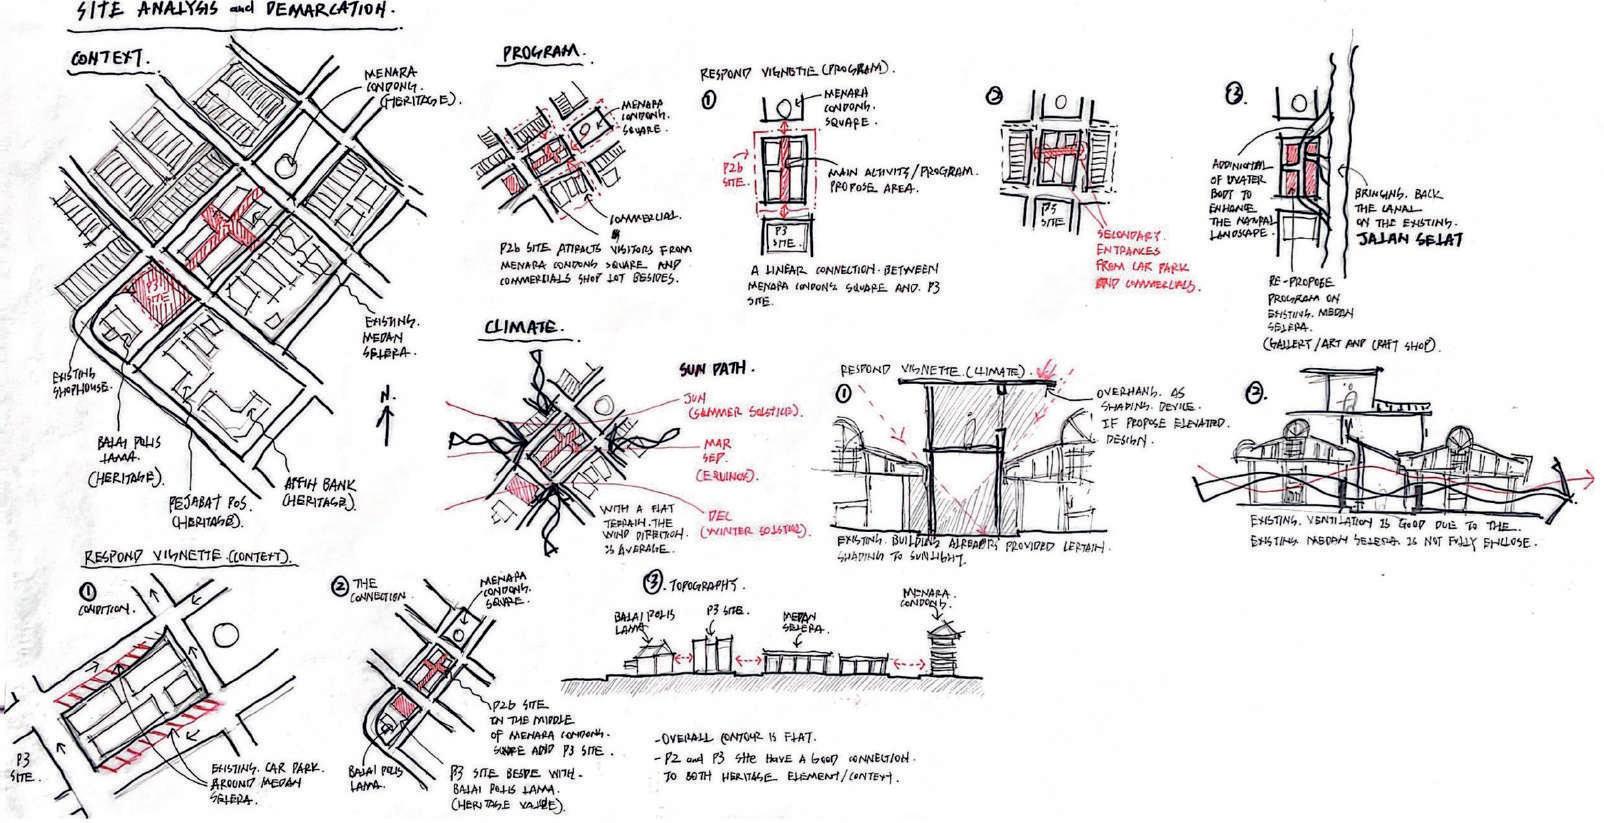 SITE ANALYSIS and DEMARCATION.
CONTEXT.
MENARA
CONDONG.
(HERITAGE).
P3
SITE
EXISTING
SHOPHOUSE.
EXISTING.
MEDAN
SELERA.
N.
BALAI POLIS
LAMA.
(HERITAGE).
PEJABAT POS.
(HERITAGE).
AFFIN BANK
(HERITAGE).
PROGRAM.
MENARA
CONDONG.
SQUARE.
COMMERCIAL.
P2b SITE ATTRACTS VISITORS FROM
MENARA CONDONG SQUARE AND
COMMERCIALS SHOP LOT BESIDES.
RESPOND VIGNETTE (PROGRAM).
1
MENARA
CONDONG.
SQUARE.
P2b
SITE.
MAIN ACTIVITY/PROGRAM.
PROPOSE AREA.
P3
SITE.
A LINEAR CONNECTION BETWEEN
MENARA CONDONG SQUARE AND P3
SITE.
2
P3
SITE
SECONDARY.
ENTRANCES
FROM CAR PARK
AND COMMERCIALS.
3.
ADDITIONAL
OF WATER
BODY TO
ENHANCE
THE NATURAL
LANDSCAPE.
BRINGING. BACK
THE CANAL
ON THE EXISTING.
JALAN SELAT
RE-PROPOSE
PROGRAM ON
EXISTING. MEDAN
SELERA.
(GALLERY/ART AND CRAFT SHOP).
CLIMATE.
SUN PATH.
JUN
(SUMMER SOLSTICE).
MAR
SEP.
(EQUINOX).
DEC
(WINTER SOLSTICE).
WITH A FLAT
TERRAIN. THE
WIND DIRECTION.
IS AVERAGE.
RESPOND VIGNETTE. (CLIMATE).
1
OVERHANG. AS
SHADING. DEVICE.
IF PROPOSE ELEVATED.
DESIGN.
EXISTING. BUILDING ALREADY PROVIDED CERTAIN.
SHADING TO SUNLIGHT.
2.
EXISTING. VENTILATION IS GOOD DUE TO THE
EXISTING MEDAN SELERA IS NOT FULLY ENCLOSE.
RESPOND VIGNETTE (CONTEXT).
1
CONDITION.
P3
SITE.
EXISTING. CAR PARK.
AROUND MEDAN
SELERA.
2 THE
CONNECTION.
MENARA
CONDONG.
SQUARE.
P2b SITE
IN THE MIDDLE
OF MENARA CONDONG.
SQUARE AND P3 SITE.
BALAI POLIS
LAMA.
P3 SITE BESIDE WITH
BALAI POLIS LAMA.
(HERITAGE VALUE).
3. TOPOGRAPHY.
BALAI POLIS
LAMA
P3 SITE.
MEDAN
SELERA.
MENARA
CONDONG.
-OVERALL CONTOUR IS FLAT.
-P2 and P3 SITE HAVE A GOOD CONNECTION.
TO BOTH HERITAGE ELEMENT/CONTEXT.